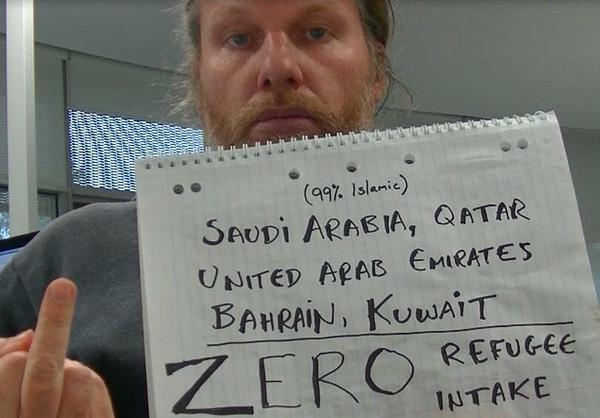 (99% Islamic)
SAUDI ARABIA, QATAR
UNITED ARAB EMIRATES
BAHRAIN, KUWAIT
ZERO REFUGEE
INTAKE